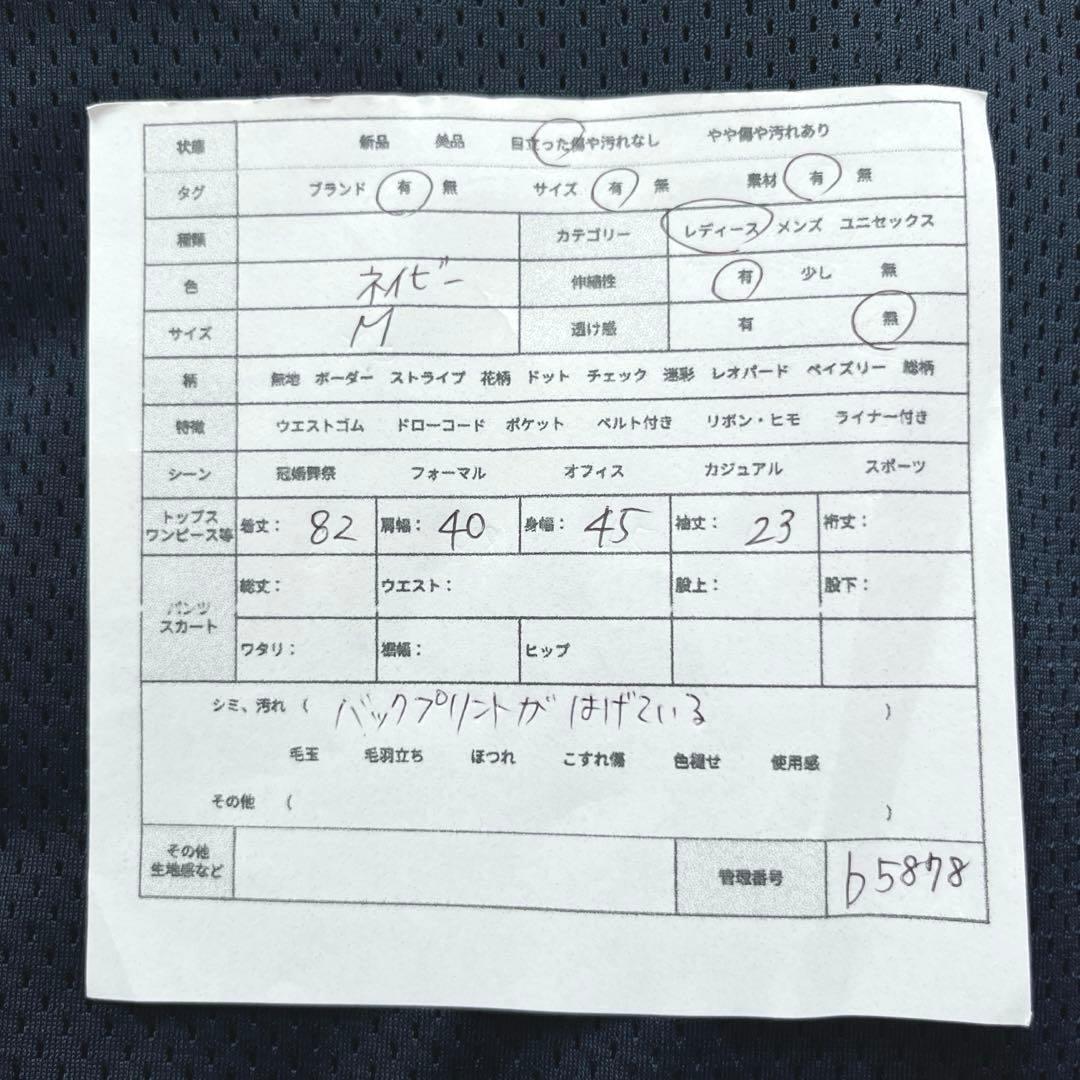 状態 新品 美品 目立った傷や汚れなし やや傷や汚れあり
タグ ブランド 有 無 サイズ 有 無 素材 有 無
種類 カテゴリー レディース メンズ ユニセックス
色 ネイビー 伸縮性 有 少し 無
サイズ M 透け感 有 無
柄 無地 ボーダー ストライプ 花柄 ドット チェック 迷彩 レオパード ペイズリー 総柄
特徴 ウエストゴム ドローコード ポケット ベルト付き リボン・ヒモ ライナー付き
シーン 冠婚葬祭 フォーマル オフィス カジュアル スポーツ
トップス
ワンピース等 着丈: 82 肩幅: 40 身幅: 45 袖丈: 23 裄丈:
パンツ
スカート 総丈: ウエスト: 股上: 股下:
ワタリ: 裾幅: ヒップ
シミ、汚れ ( バックプリントがはげている )
毛玉 毛羽立ち ほつれ こすれ傷 色褪せ 使用感
その他 ( )
その他
生地感など 管理番号 b5878